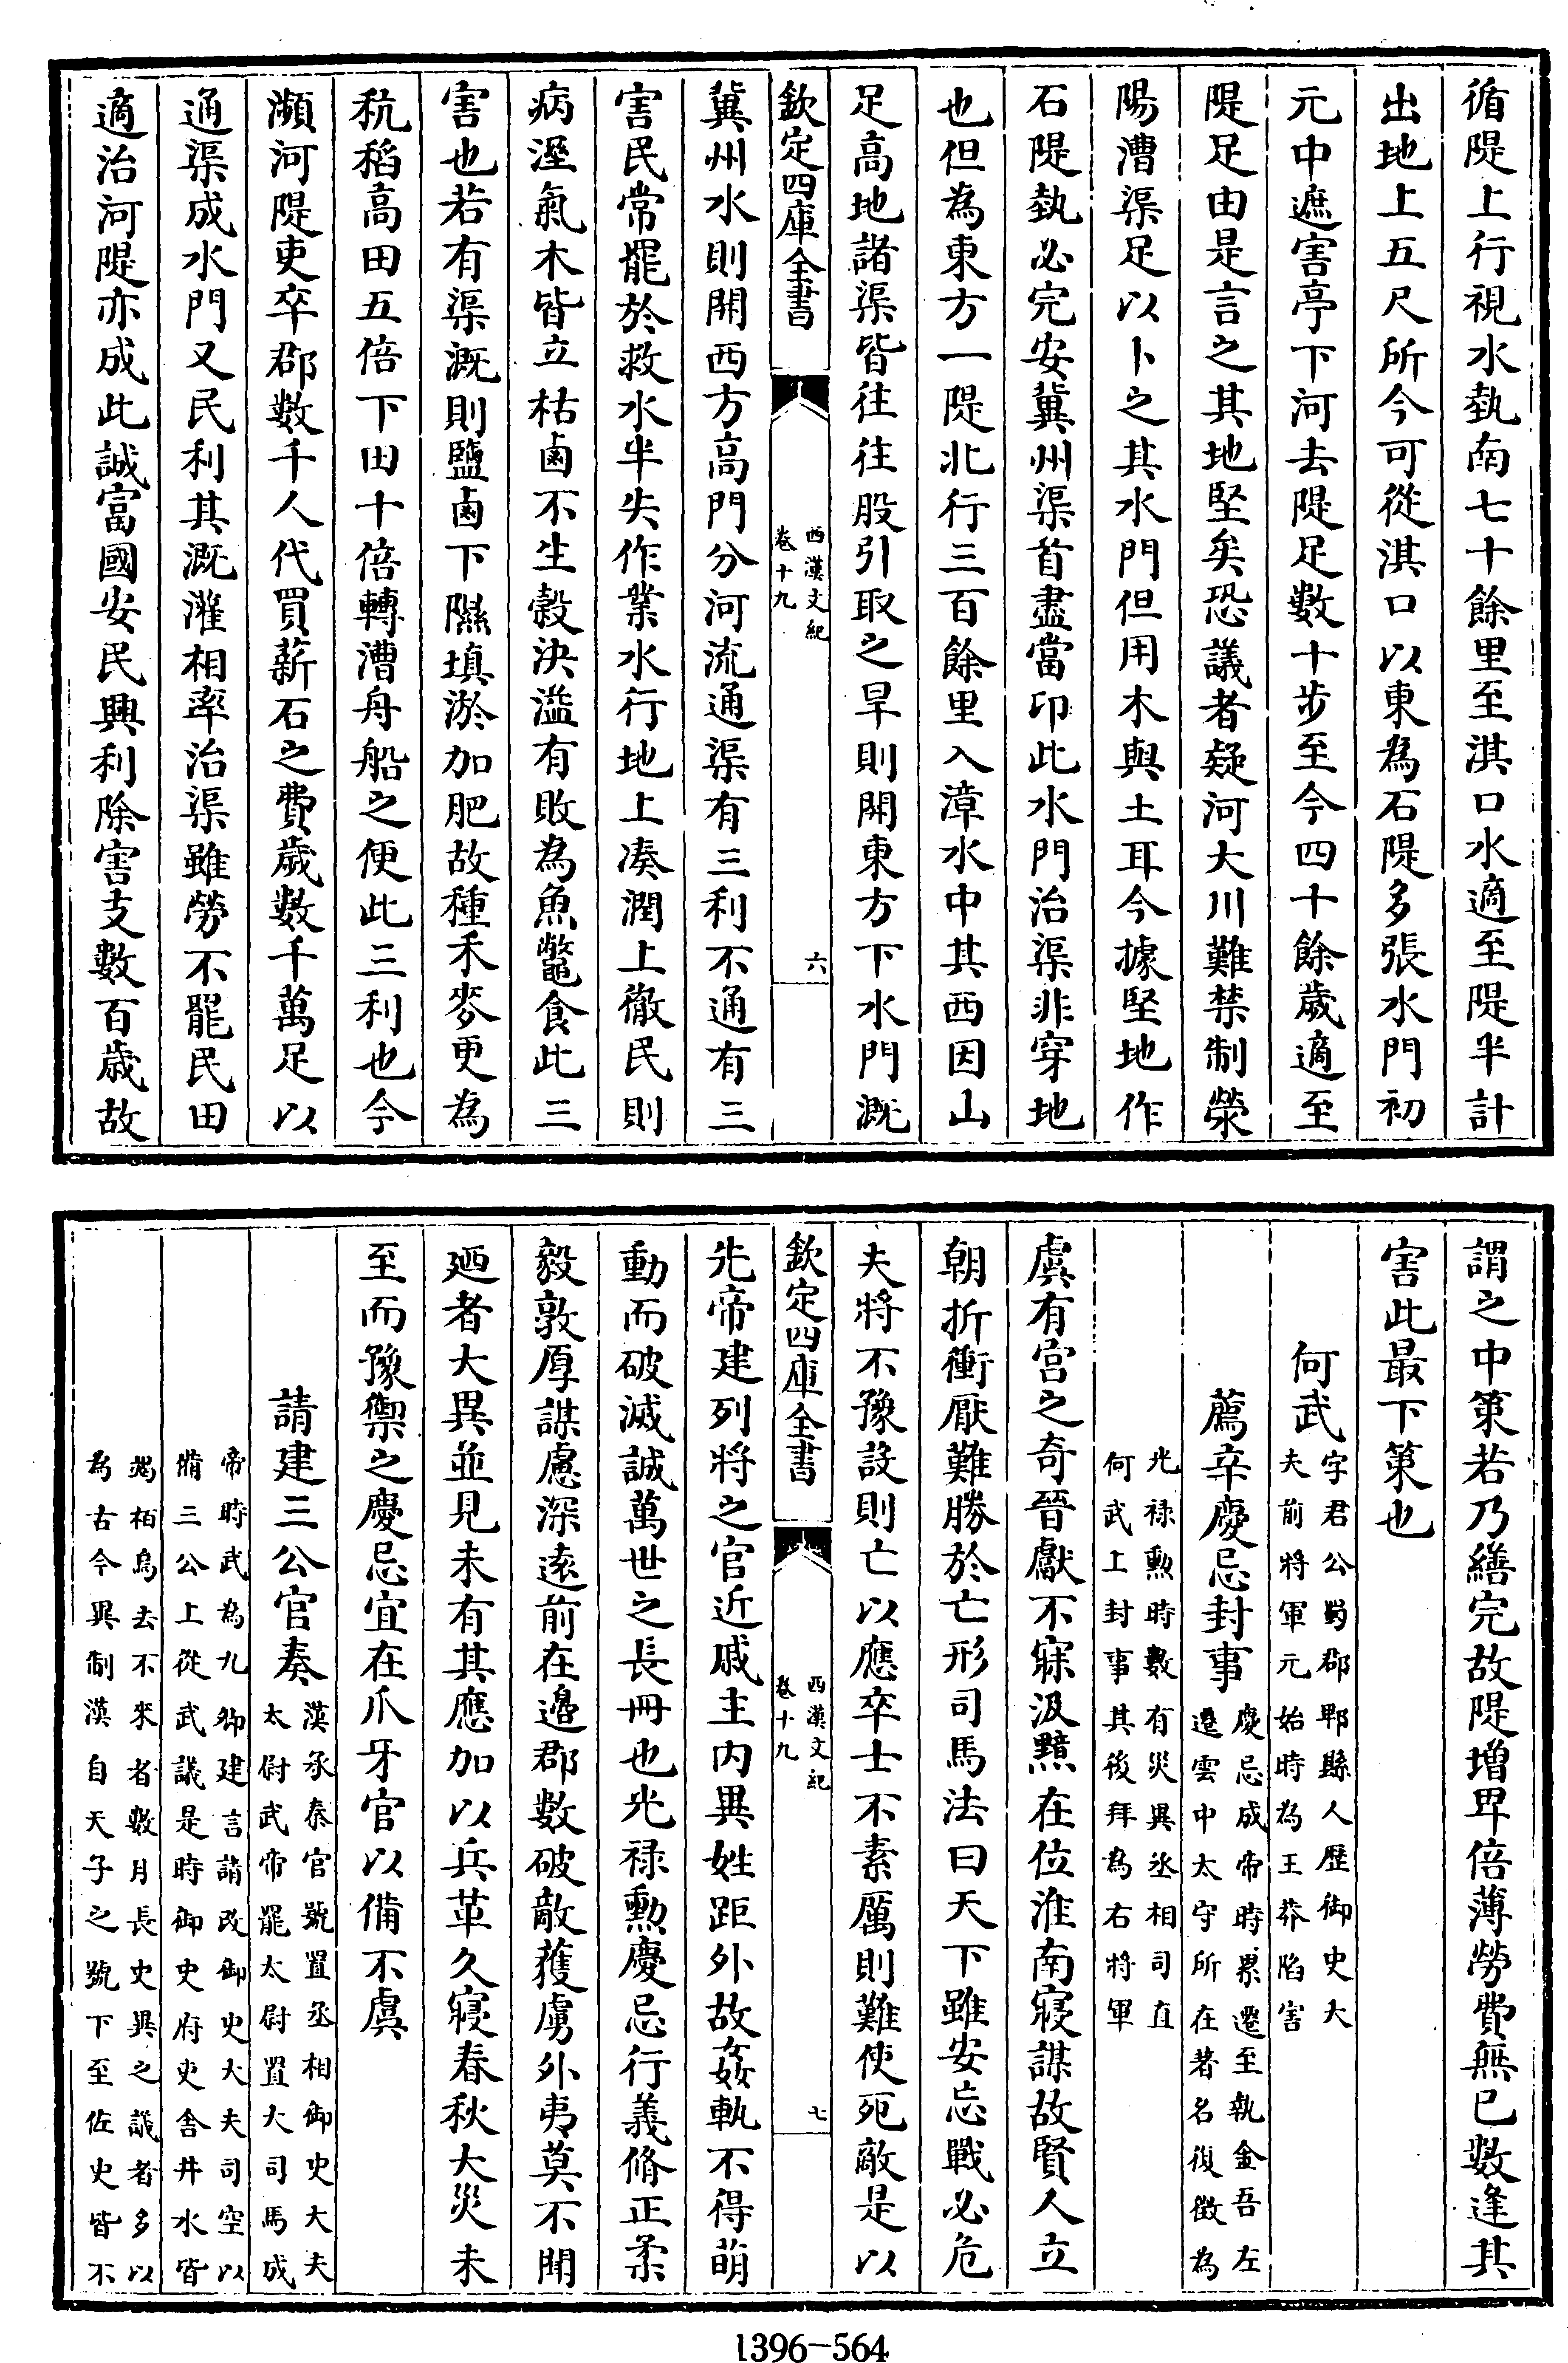 循隄上行視水埶南七十餘里至淇口水適至隄半計
出地上五尺所今可從淇口以東為石隄多張水門初
元中遮害亭下河去隄足數十步至今四十餘歲適至
隄足由是言之其地堅矣恐議者疑河大川難禁制滎
陽漕渠足以卜之其水門但用木與土耳今據堅地作
石隄埶必完安冀州渠首盡當卬此水門治渠非穿地
也但為東方一隄北行三百餘里入漳水中其西因山
足高地諸渠皆往往股引取之旱則開東方下水門溉
欽定四庫全書
西漢文紀
卷十九
六
冀州水則開西方高門分河流通渠有三利不通有三
害民常罷於救水半失作業水行地上湊潤上徹民則
病溼氣木皆立枯鹵不生穀決溢有敗為魚鼈食此三
害也若有渠溉則鹽鹵下隰填淤加肥故種禾麥更為
秔稻高田五倍下田十倍轉漕舟船之便此三利也今
瀕河隄吏卒郡數千人代買薪石之費歲數千萬足以
通渠成水門又民利其溉灌相率治渠雖勞不罷民田
適治河隄亦成此誠富國安民興利除害支數百歲故
謂之中策若乃繕完故隄增卑倍薄勞費無已數逢其
害此最下策也
何武字君公蜀郡郫縣人歷御史大
夫前將軍元始時為王莽陷害
薦辛慶忌封事慶忌成帝時累遷至執金吾左
遷雲中太守所在著名復徵為
光祿勲時數有災異丞相司直
何武上封事其後拜為右將軍
虞有宫之奇晉獻不寐汲黯在位淮南寢謀故賢人立
朝折衝厭難勝於亡形司馬法曰天下雖安忘戰必危
夫將不豫設則亡以應卒士不素厲則難使死敵是以
欽定四庫全書
西漢文紀
卷十九
七
先帝建列將之官近戚主内異姓距外故姦軌不得萌
動而破滅誠萬世之長冊也光禄勲慶忌行義脩正柔
毅敦厚謀慮深逺前在邉郡數破敵獲虜外夷莫不聞
廼者大異並見未有其應加以兵革久寢春秋大災未
至而豫禦之慶忌宜在爪牙官以備不虞
請建三公官奏漢承秦官號置丞相御史大夫
太尉武帝罷太尉置大司馬成
帝時武為九卿建言請改御史大夫司空以
備三公上從武議是時御史府吏舍井水皆
竭栢烏去不來者數月長史異之議者多以
為古今異制漢自天子之號下至佐史皆不
1396-564